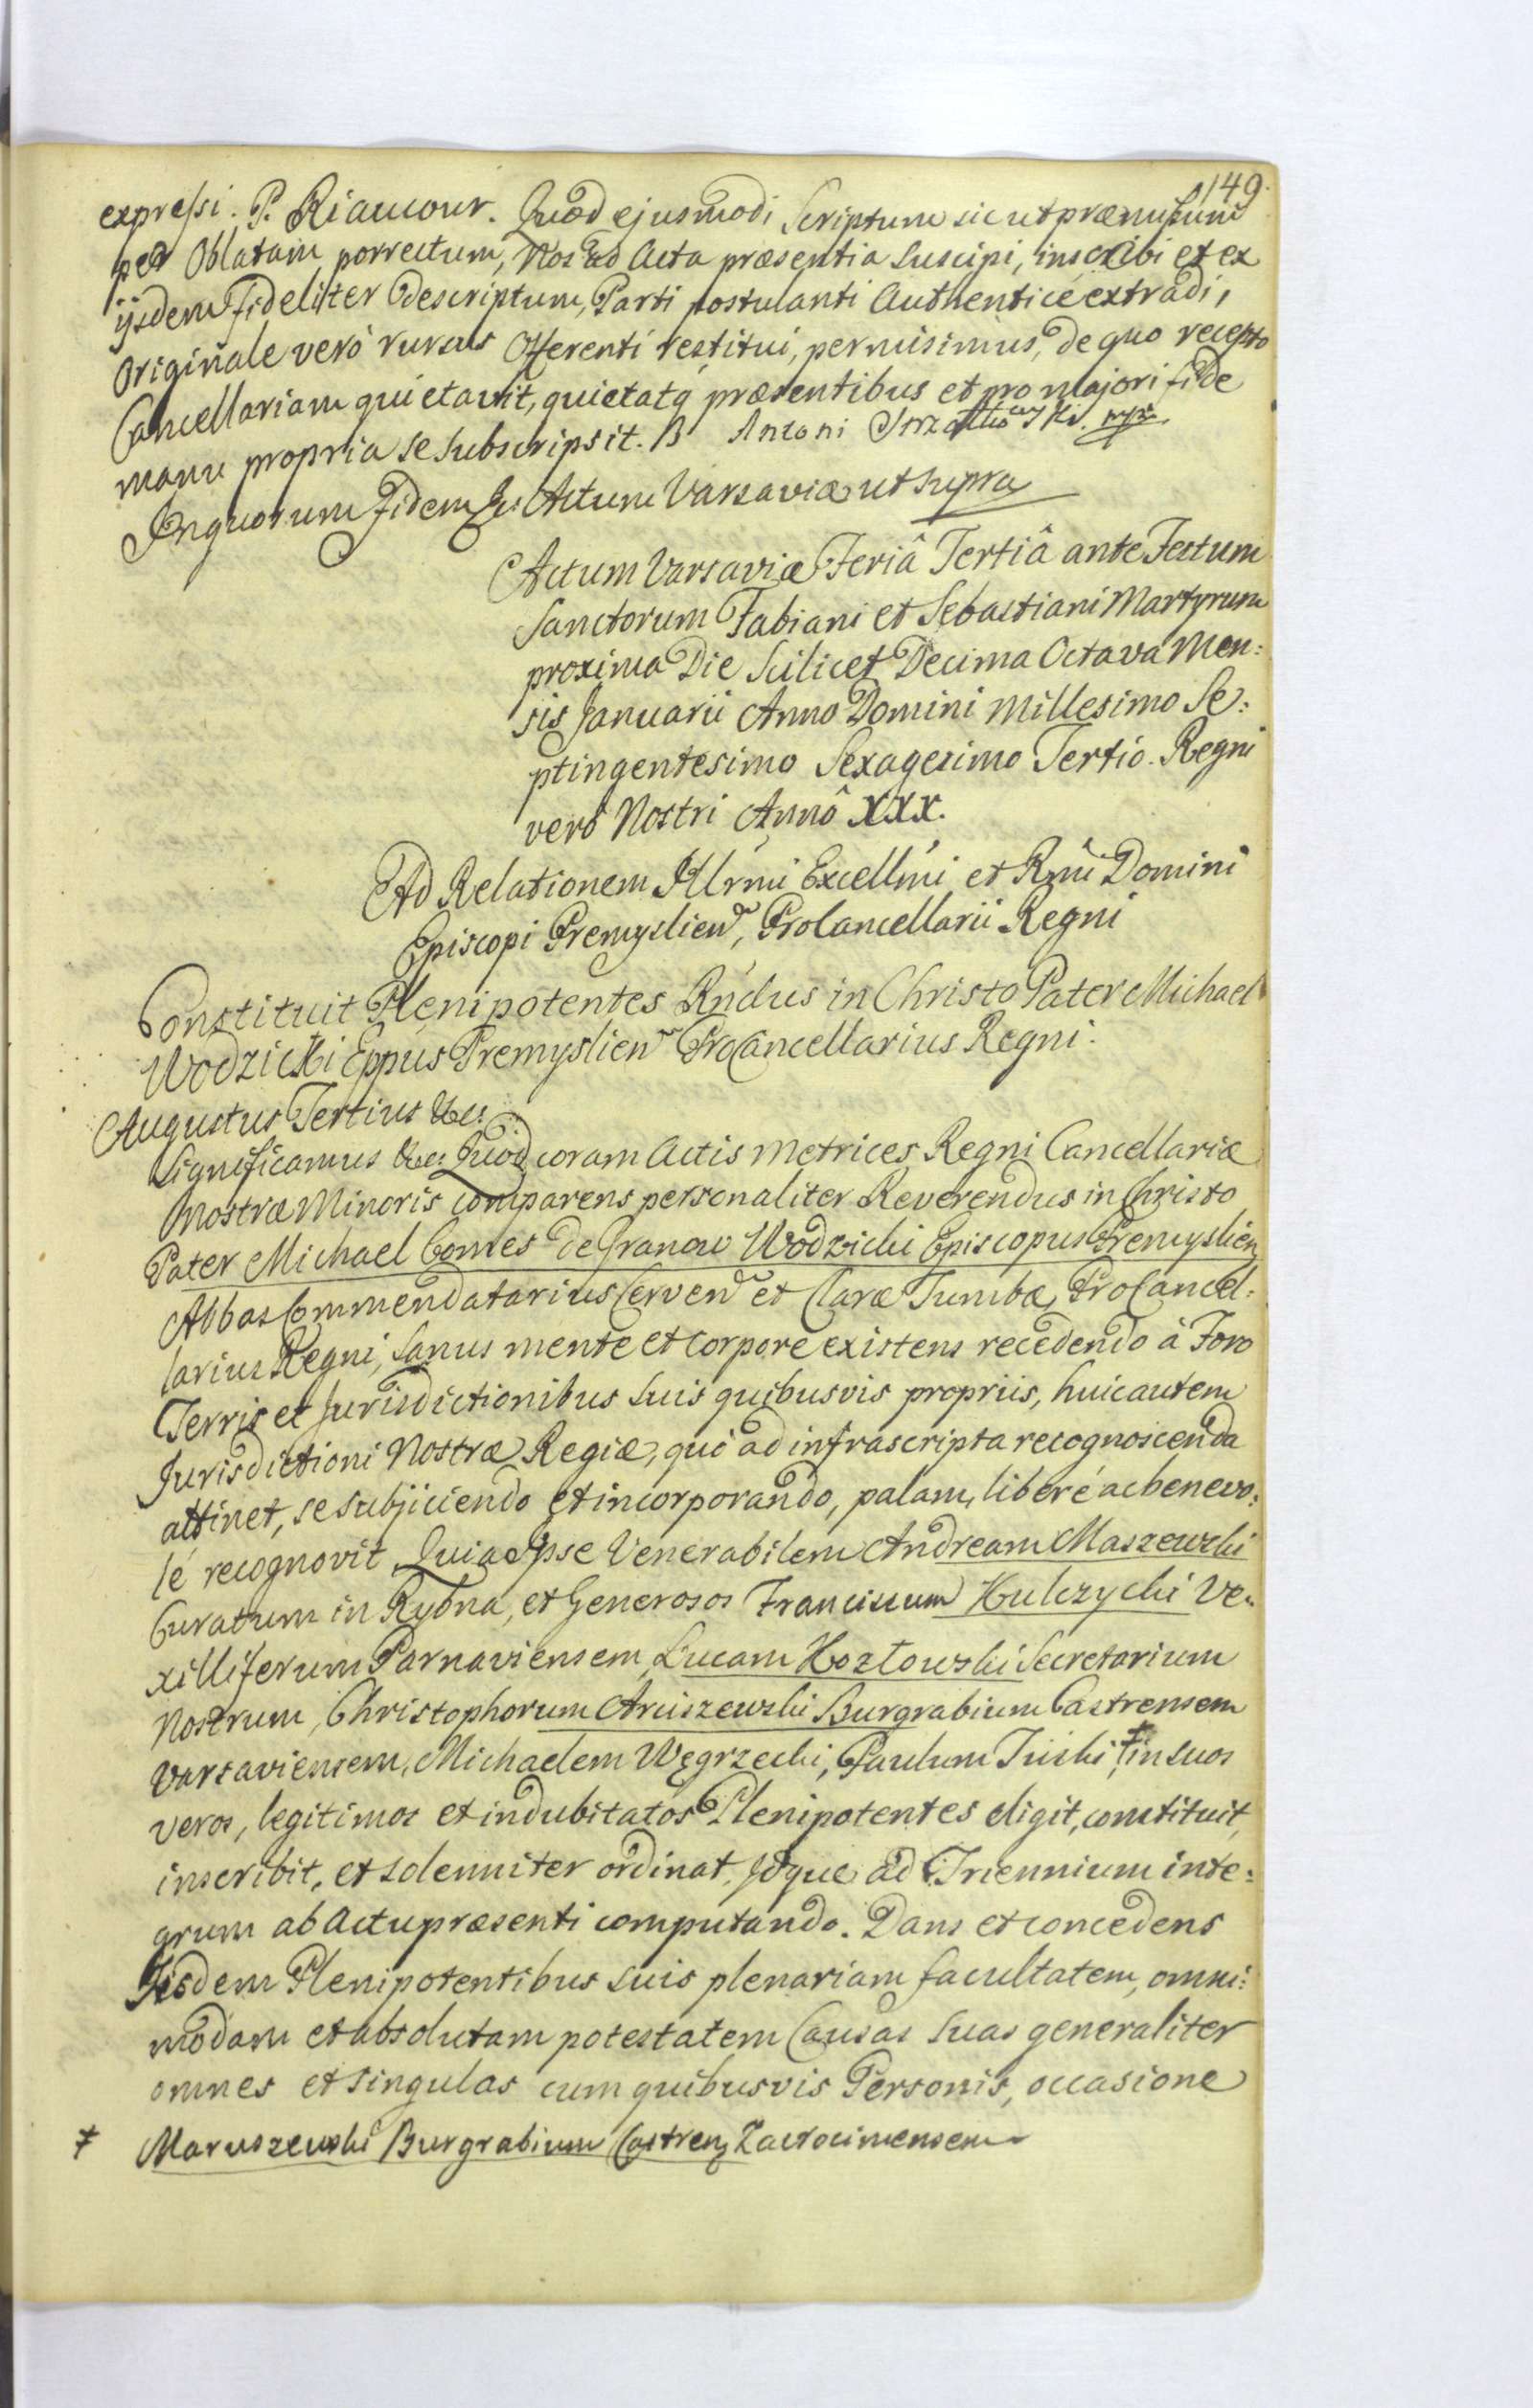 149.
expressi. P. Riaucour. Quod ejusmodi Scriptum sicut præmissum
per Oblatam porrectum, Nos ad Acta præsentia suscipi, inscribi et ex
ijsdem fideliter descriptum, Parti postulanti Authenticè extradi,
Originale verò rursus Offerenti restitui, permisimus, de quo recepto
Cancellariam quietavit, quietatq præsentibus et pro majori fide
manu propria se subscripsit. Antoni mpr
In quorum fidem &c: Actum Varsaviæ ut supra
Actum Varsaviæ Feriâ Tertiâ ante Festum
Sanctorum Fabiani et Sebastiani Martyrum
proxima Die Scilicet Decima Octava Men:
sis Januarii Anno Domini Millesimo Se:
ptingentesimo Sexagesimo Tertio. Regni
verò Nostri Annô XXX.
Ad Relationem Illrmi Excellmi et Rmi Domini
Episcopi Premyslien, ProCancellarii Regni
Constituit Plenipotentes Rndus in Christo Pater Michael
Wodzicki Eppus Premyslien ProCancellarius Regni.
Augustus Tertius &c:
Significamus &c: Quod coram Actis Metrices Regni Cancellariæ
Nostræ Minoris comparens personaliter Reverendus in Christo
Pater Michael Comes de Granow Wodzicki Episcopus Premyslien
Abbas Commendatarius Cerven et Claræ Tumbæ, ProCancel:
larius Regni, Sanus mente et corpore existens recedendo à Foro
Terris et Jurisdictionibus suis quibusvis propriis, huic autem
Jurisdictioni Nostræ Regiæ, quò ad infrascripta recognoscenda
attinet, se subjiciendo et incorporando, palam, liberè ac benevo:
lè recognovit Quia Ipse Venerabilem Andream Maszewski
Curatum in Rybna, et Generosos Franciscum Hulczycki Ve:
xilliferum Parnaviensem, Lucam Kozłowski Secretarium
Nostrum, Christophorum Aruszewski Burgrabium Castrensem
Varsaviensem, Michaelem Węgrzecki, Paulum Turski, ‡ in suos
veros, legitimos et indubitatos Plenipotentes eligit, constituit,
inscribit, et solenniter ordinat. Idque ad Triennium inte:
grum ab Actu præsenti computando. Dans et concedens
Iisdem Plenipotentibus suis plenariam facultatem, omni:
modam et absolutam potestatem Causas suas generaliter
omnes et singulas cum quibusvis Personis, occasione
‡ Maruszewski Burgrabium Castren Zacrocimensem